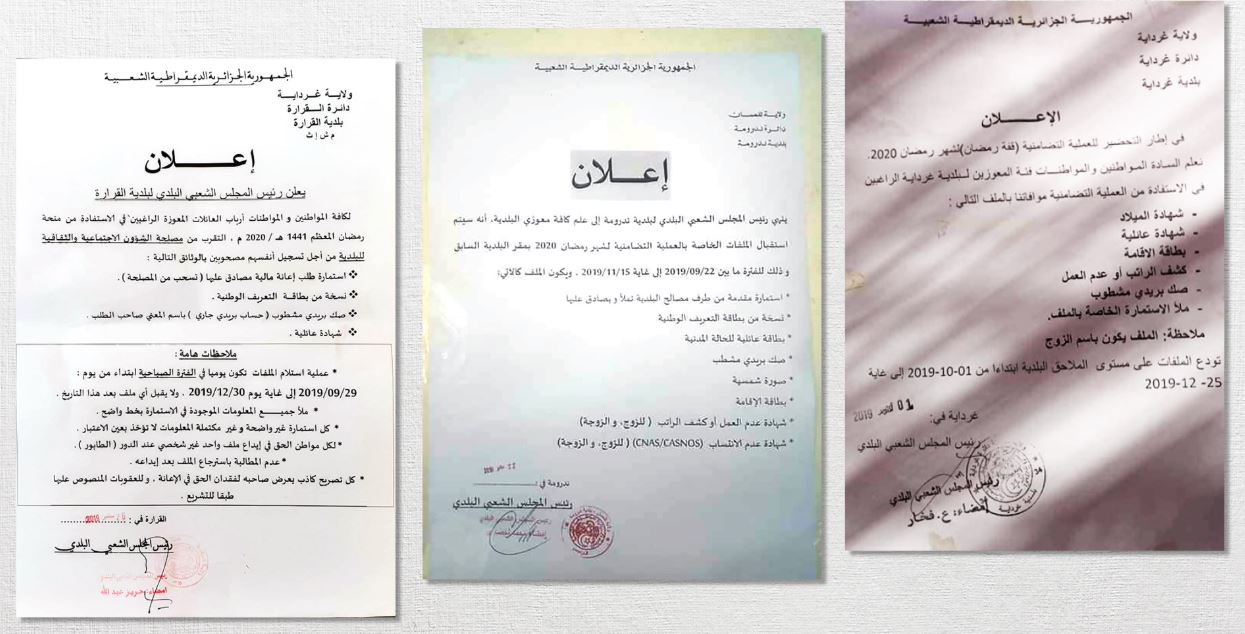 الجمهورية الجزائرية الديمقراطية الشعبية
ولاية غرداية
دائرة القرارة
بلدية القرارة
م ش إ ث
إعلان
يعلن رئيس المجلس الشعبي البلدي لبلدية القرارة
لكافة المواطنين و المواطنات أرباب العائلات المعوزة الراغبين في الاستفادة من منحة
رمضان المعظم 1441 هـ / 2020 م ، التقرب من مصلحة الشؤون الاجتماعية والثقافية
للبلدية من أجل تسجيل أنفسهم مصحوبين بالوثائق التالية :
❖ استمارة طلب إعانة مالية مصادق عليها ( تسحب من المصلحة ) .
❖ نسخة من بطاقة التعريف الوطنية .
❖ صك بريدي مشطوب ( حساب بريدي جاري ) باسم المعني صاحب الطلب .
❖ شهادة عائلية .
ملاحظات هامة :
* عملية استلام الملفات تكون يوميا في الفترة الصباحية ابتداء من يوم :
2019/09/29 إلى غاية يوم 2019/12/30 ، ولا يقبل أي ملف بعد هذا التاريخ .
* ملأ جميع المعلومات الموجودة في الاستمارة بخط واضح .
* كل استمارة غير واضحة و غير مكتملة المعلومات لا تؤخذ بعين الاعتبار .
* لكل مواطن الحق في إيداع ملف واحد غير شخصي عند الدور ( الطابور ) .
* عدم المطالبة باسترجاع الملف بعد إيداعه .
* كل تصريح كاذب يعرض صاحبه لفقدان الحق في الإعانة ، و للعقوبات المنصوص عليها
طبقا للتشريع .
القرارة في :
رئيس المجلس الشعبي البلدي
رئيس المجلس الشعبي البلدي
امضاء: حريز عبد الله
الجمهورية الجزائرية الديمقراطية الشعبية
ولاية تلمسان
دائرة ندرومة
بلدية ندرومة
إعلان
ينهي رئيس المجلس الشعبي البلدي لبلدية ندرومة إلى علم كافة معوزي البلدية، أنه سيتم
استقبال الملفات الخاصة بالعملية التضامنية لشهر رمضان 2020 بمقر البلدية السابق
و ذلك للفترة ما بين 2019/09/22 إلى غاية 2019/11/15 . ويكون الملف كالآتي:
* استمارة مقدمة من طرف مصالح البلدية تملأ و يصادق عليها
* نسخة من بطاقة التعريف الوطنية
* بطاقة عائلية للحالة المدنية
* صك بريدي مشطب
* صورة شمسية
* بطاقة الإقامة
* شهادة عدم العمل أو كشف الراتب ( للزوج، و الزوجة)
* شهادة عدم الانتساب (CNAS/CASNOS) ( للزوج، و الزوجة)
ندرومة في
رئيس المجلس الشعبي البلدي
رئيس المجلس الشعبي البلدي
الجمهورية الجزائرية الديمقراطية الشعبية
ولاية غرداية
دائرة غرداية
بلدية غرداية
الإعلان
في إطار التحضير للعملية التضامنية (قفة رمضان)لشهر رمضان 2020.
نعلم السادة المواطنين والمواطنات فئة المعوزين لبلدية غرداية الراغبين
في الاستفادة من العملية التضامنية موافاتنا بالملف التالي :
- شهادة الميلاد
- شهادة عائلية
- بطاقة الاقامة
- كشف الراتب أو عدم العمل
- صك بريدي مشطوب
- ملأ الاستمارة الخاصة بالملف.
ملاحظة: الملف يكون باسم الزوج
تودع الملفات على مستوى الملاحق البلدية ابتداءا من 01-10-2019 إلى غاية
25- 12-2019
غرداية في:
01 أكتوبر 2019
رئيس المجلس الشعبي البلدي
رئيس المجلس الشعبي البلدي
إمضاء: ع. فخار